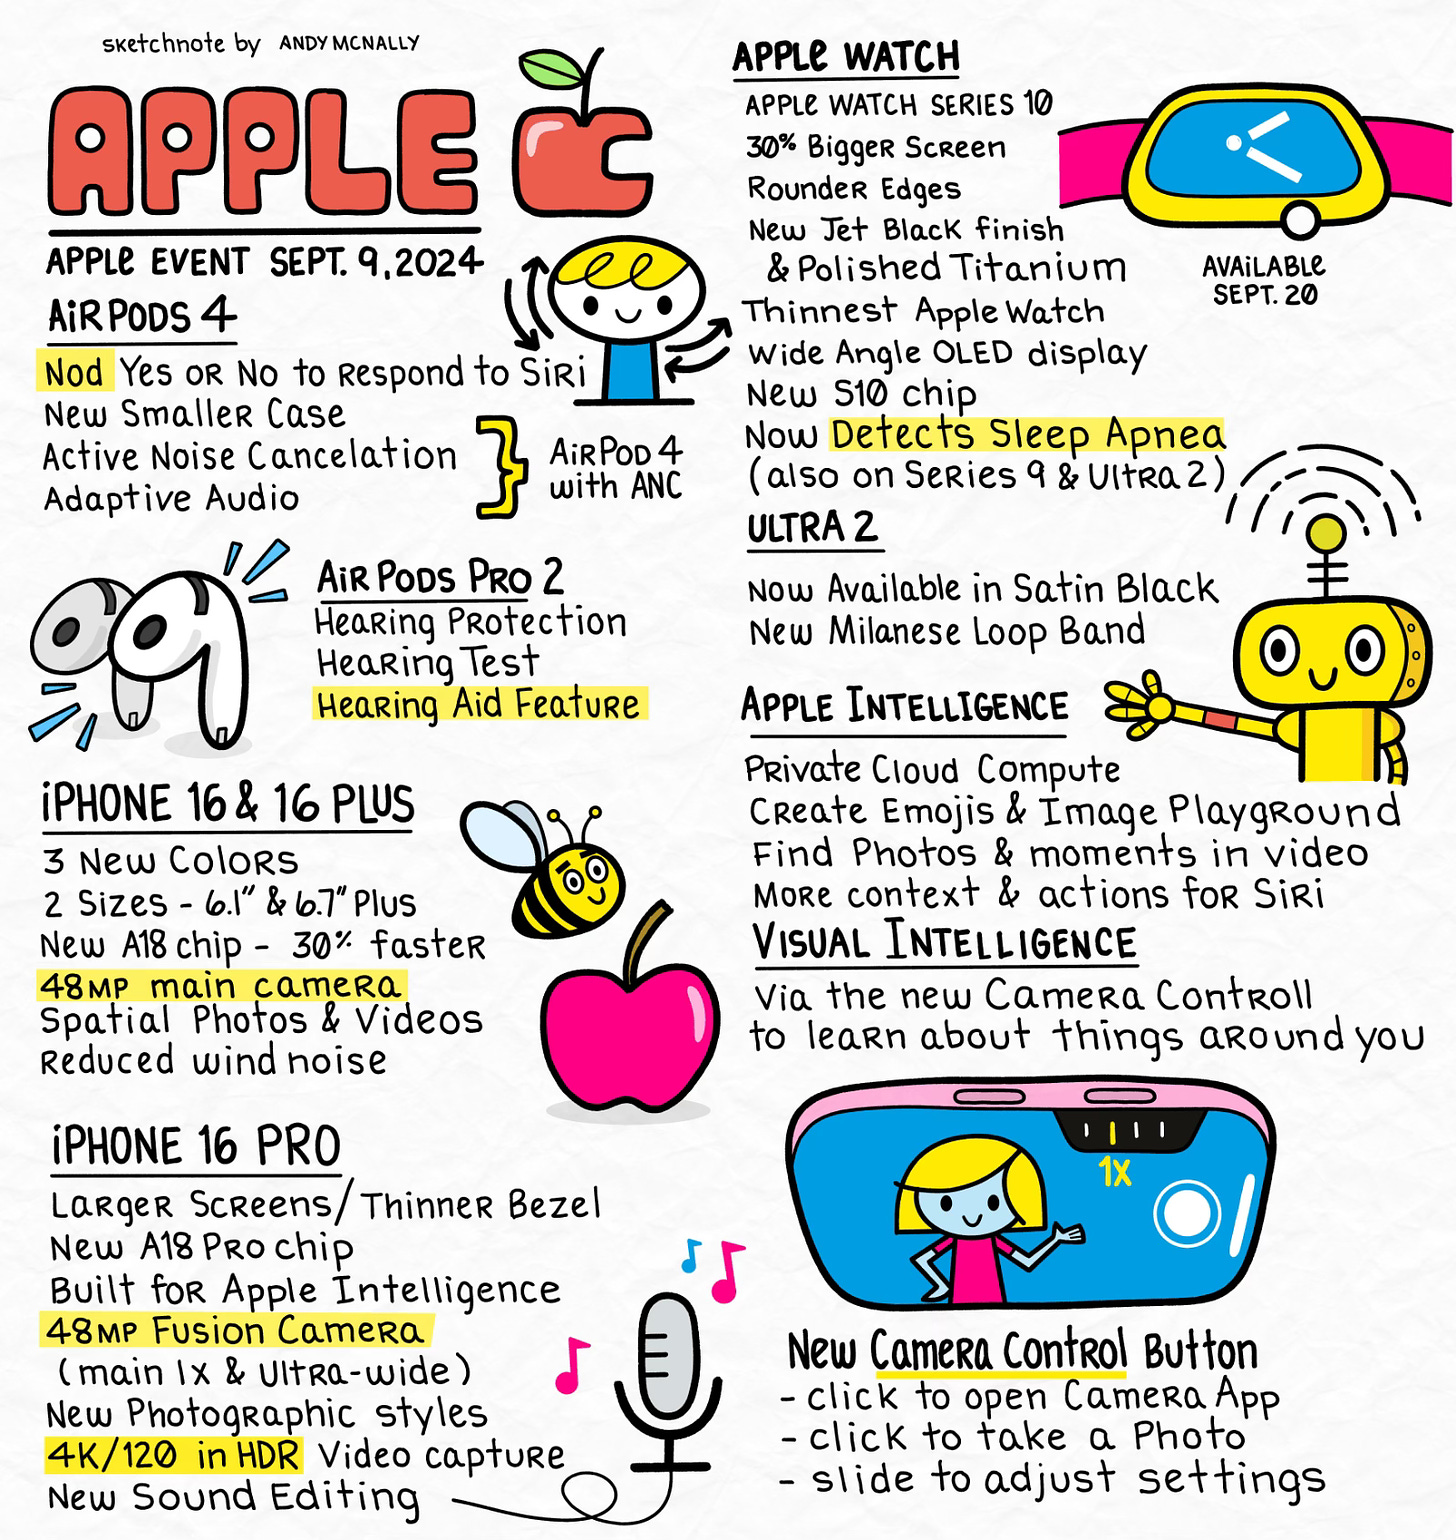 sketchnote by ANDY MCNALLY
APPLE
APPLE EVENT SEPT. 9, 2024
AiRPODS 4
Nod Yes or No to Respond to SiRi
New Smaller Case
Active Noise Cancelation
Adaptive Audio
AiRPOD 4
with ANC
AiRPODS PRO 2
Hearing Protection
Hearing Test
Hearing Aid Feature
iPHONE 16 & 16 PLUS
3 New Colors
2 Sizes - 6.1" & 6.7" Plus
New A18 chip - 30% faster
48MP main camera
Spatial Photos & Videos
Reduced wind noise
iPHONE 16 PRO
Larger Screens/Thinner Bezel
New A18 Pro chip
Built for Apple Intelligence
48MP Fusion Camera
(main 1x & Ultra-wide)
New Photographic styles
4K/120 in HDR Video capture
New Sound Editing
APPLE WATCH
APPLE WATCH SERIES 10
30% Bigger Screen
Rounder Edges
New Jet Black finish
& Polished Titanium
Thinnest Apple Watch
Wide Angle OLED display
New S10 chip
Now Detects Sleep Apnea
(also on Series 9 & Ultra 2)
AVAiLABLE
SEPT. 20
ULTRA 2
Now Available in Satin Black
New Milanese Loop Band
APPLE INTELLIGENCE
Private Cloud Compute
Create Emojis & Image Playground
Find Photos & moments in video
More context & actions for SiRi
VISUAL INTELLIGENCE
Via the new Camera Controll
to learn about things around you
1X
New Camera Control Button
- click to open Camera App
- click to take a Photo
- slide to adjust settings